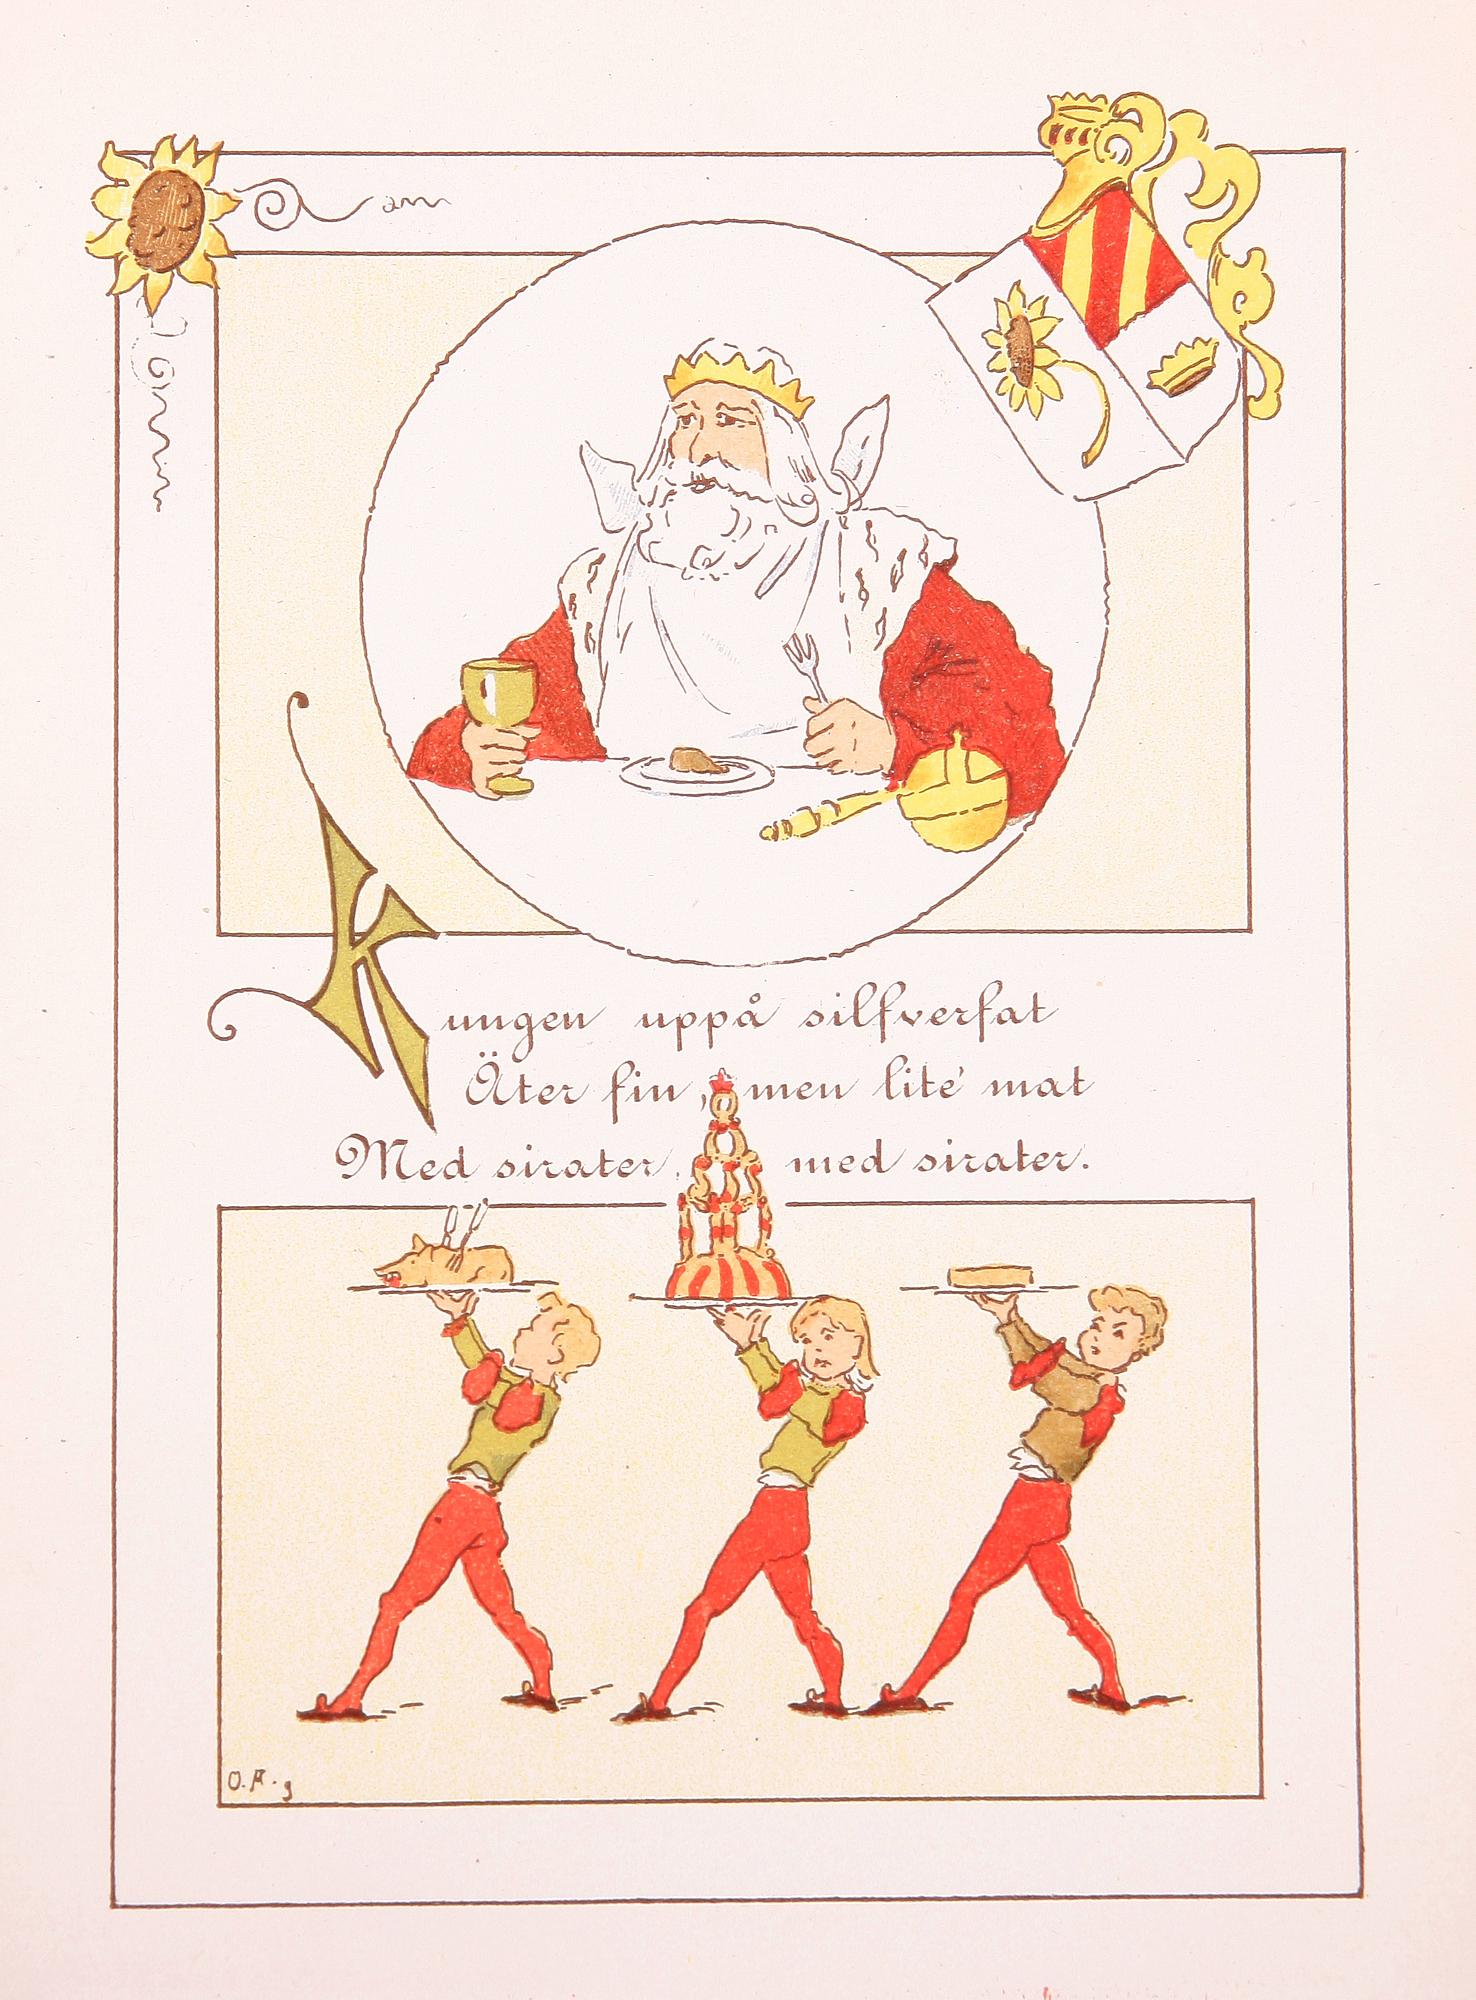 Kungen uppå silfverfat
Äter fin, men lite' mat
Med sirater, med sirater.
O.A.